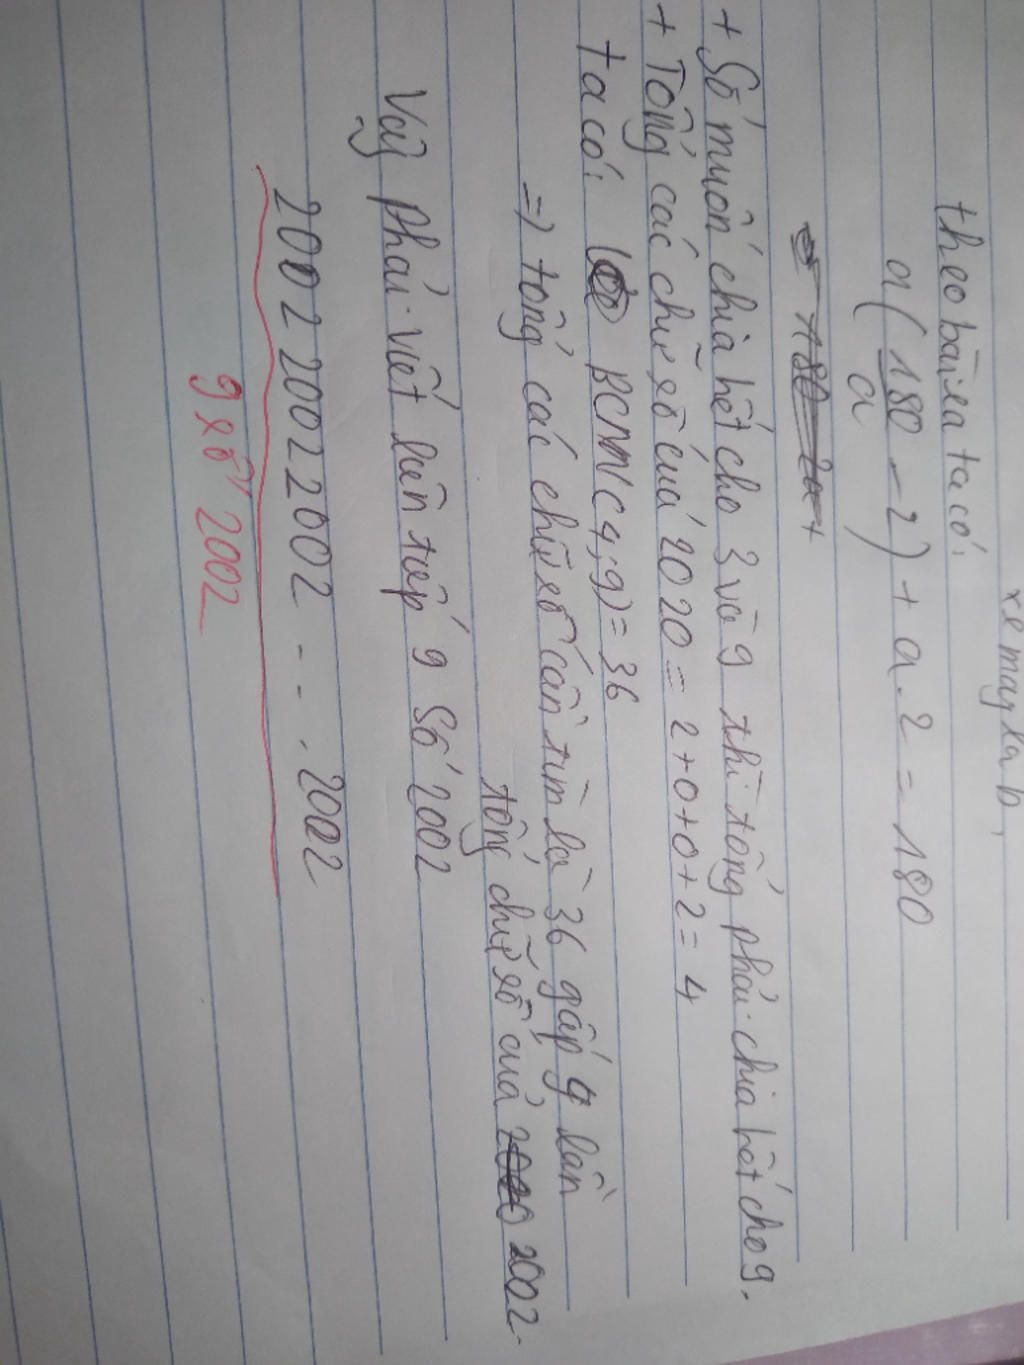 xe máy là b,
theo bài ra ta có:
a(180/a - 2) + a.2 = 180
180 2a +
+ Số muốn chia hết cho 3 và 9 thì tổng phải chia hết cho 9.
+ Tổng các chữ số của 2020 = 2+0+0+2 = 4
ta có: BCNN(4;9) = 36
=> tổng các chữ số cần tìm là 36 gấp 9 lần
tổng chữ số của 2000 2002.
Vậy phải viết liên tiếp 9 số 2002
2002 2002 2002 - - . 2002
9 số 2002